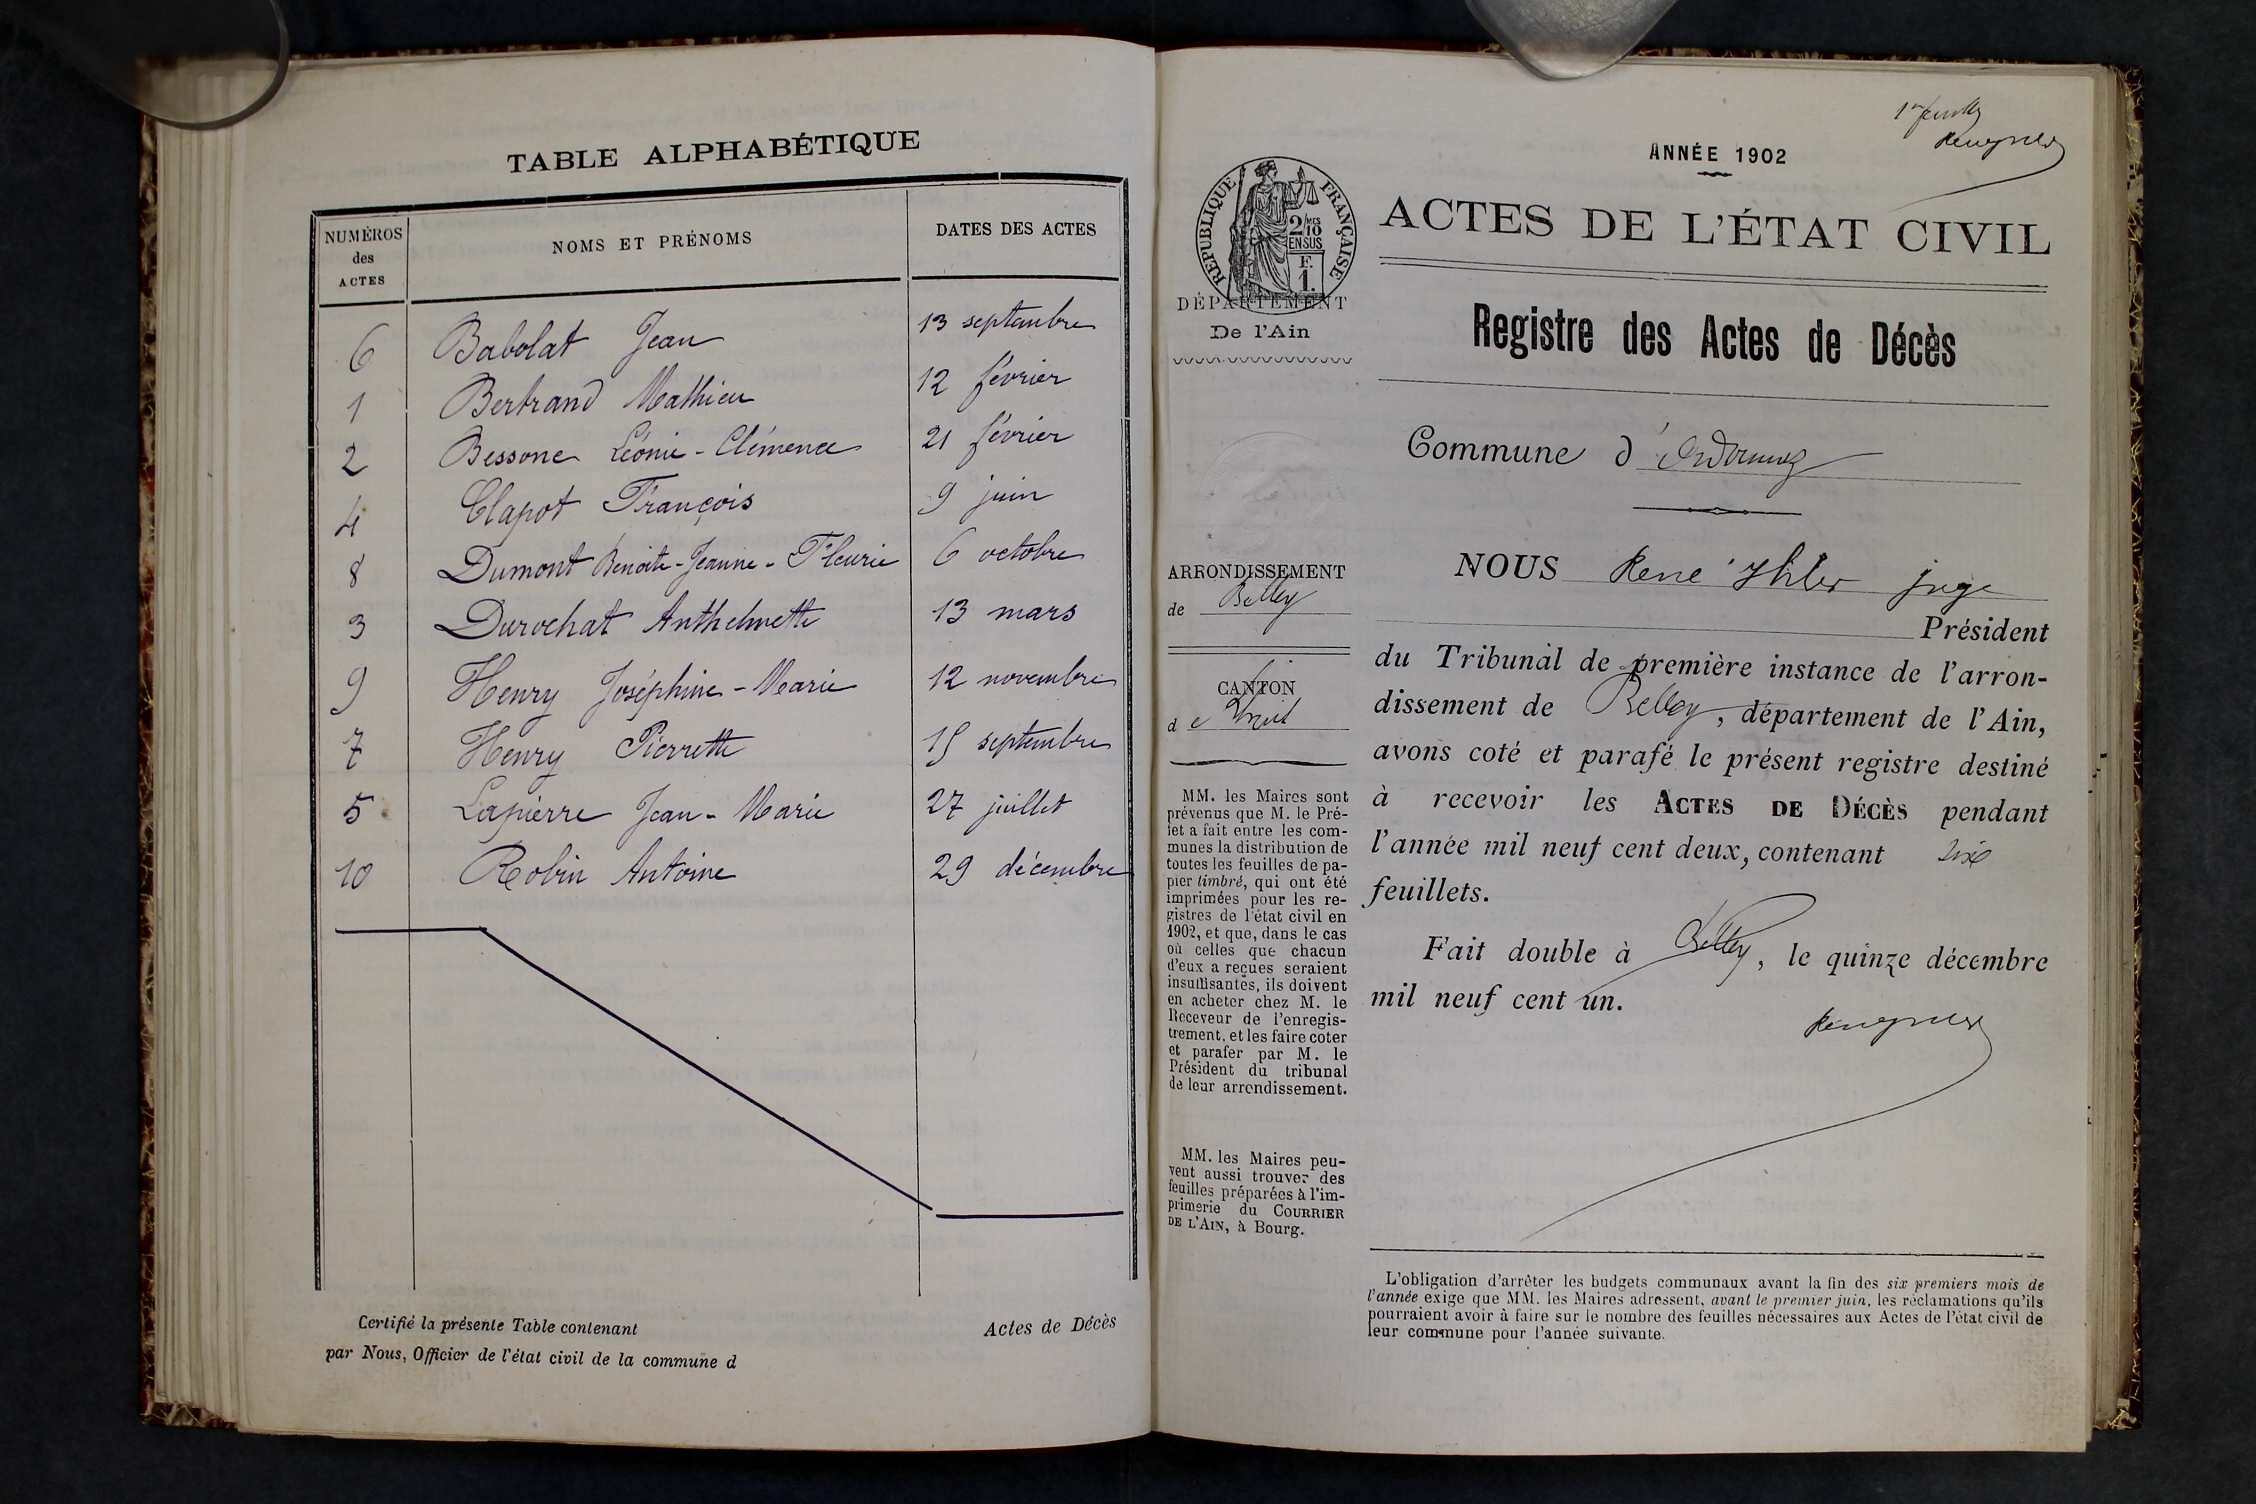 TABLE ALPHABÉTIQUE
NUMÉROS des ACTES NOMS ET PRÉNOMS DATES DES ACTES
6 Babolat Jean 13 septembre
1 Bertrand Mathieu 12 février
2 Bessone Léonie-Clémence 21 février
4 Clapot François 9 juin
8 Dumont Benoite-Jeanne-Fleurie 6 octobre
3 Durochat Anthelmette 13 mars
9 Henry Joséphine-Marie 12 novembre
7 Henry Pierrette 15 septembre
5 Lapierre Jean-Marie 27 juillet
10 Robin Antoine 29 décembre
Certifié la présente Table contenant Actes de Décès
par Nous, Officier de l'état civil de la commune d
ANNÉE 1902
RÉPUBLIQUE FRANÇAISE
2/10MES
EN SUS
F.
1.
DÉPARTEMENT
De l'Ain
ARRONDISSEMENT
de Belley
CANTON
de
MM. les Maires sont
prévenus que M. le Pré-
fet a fait entre les com-
munes la distribution de
toutes les feuilles de pa-
pier timbré, qui ont été
imprimées pour les re-
gistres de l'état civil en
1902, et que, dans le cas
où celles que chacun
d'eux a reçues seraient
insuffisantes, ils doivent
en acheter chez M. le
Receveur de l'enregis-
trement, et les faire coter
et parafer par M. le
Président du tribunal
de leur arrondissement.
MM. les Maires peu-
vent aussi trouver des
feuilles préparées à l'im-
primerie du COURRIER
DE L'AIN, à Bourg.
ACTES DE L'ÉTAT CIVIL
Registre des Actes de Décès
Commune d'Ordonnaz
NOUS René juge
Président
du Tribunal de première instance de l'arron-
dissement de Belley, département de l'Ain,
avons coté et parafé le présent registre destiné
à recevoir les ACTES DE DÉCÈS pendant
l'année mil neuf cent deux, contenant
feuillets.
Fait double à Belley, le quinze décembre
mil neuf cent un.
L'obligation d'arrêter les budgets communaux avant la fin des six premiers mois de
l'année exige que MM. les Maires adressent, avant le premier juin, les réclamations qu'ils
pourraient avoir à faire sur le nombre des feuilles nécessaires aux Actes de l'état civil de
leur commune pour l'année suivante.